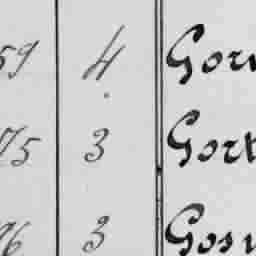 59 4 Gorv
75 3 Gort
76 3 Gosv